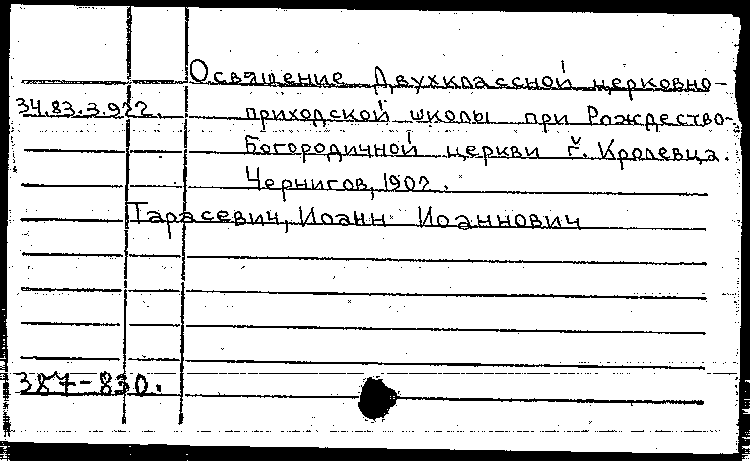 Освящение Двухклассной церковно-
34.83.3.922. приходской школы при Рождество-
Богородичной церкви г. Кролевца.
Чернигов, 1902.
Тарасевич, Иоанн Иоаннович
387-830.